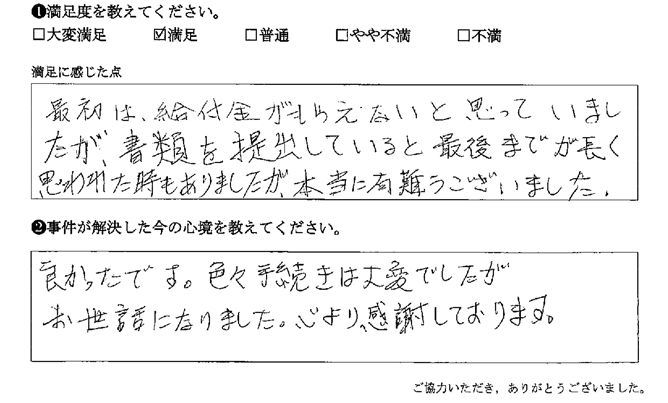 ❶満足度を教えてください。
□大変満足 ☑満足 □普通 □やや不満 □不満
満足に感じた点
最初は、給付金がもらえないと思っていまし
たが、書類を提出していると最後までが長く
思われた時もありましたが、本当に有難うございました。
❷事件が解決した今の心境を教えてください。
良かったです。色々手続きは大変でしたが
お世話になりました。心より感謝しております。
ご協力いただき、ありがとうございました。